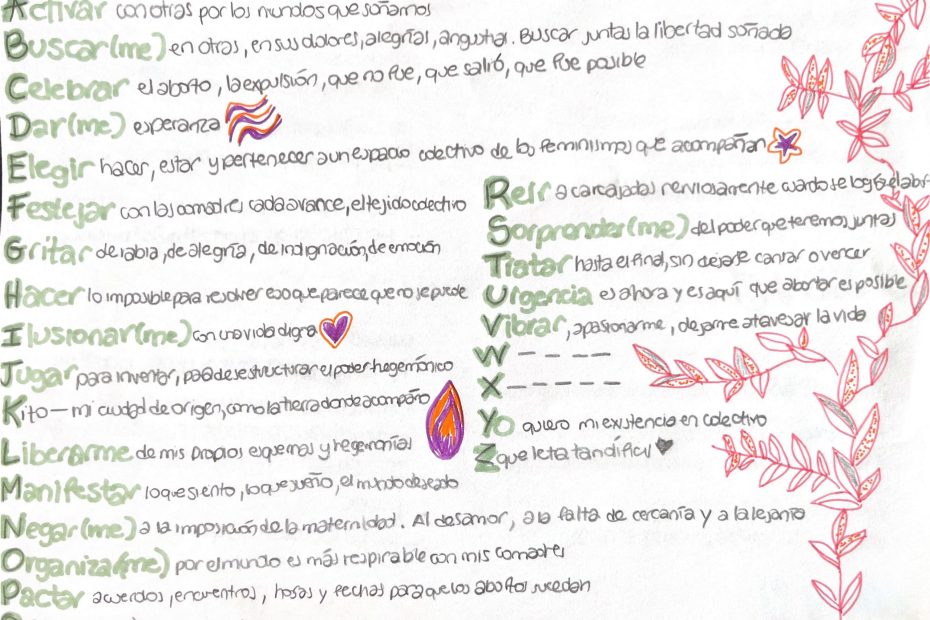 Activar con otras por los mundos que soñamos
Buscar(me) en otras, en sus dolores, alegrías, angustias. Buscar juntas la libertad soñada
Celebrar el aborto, la expulsión, que no fue, que salió, que fue posible
Dar(me) esperanza
Elegir hacer, estar y pertenecer a un espacio colectivo de los feminismos que acompañan
Festejar con las comadres cada avance, el tejido colectivo
Gritar de rabia, de alegría, de indignación, de emoción
Hacer lo imposible para resolver eso que parece que no se puede
Ilusionar(me) con una vida digna
Jugar para inventar, para desestructurar el poder hegemónico
Kito — mi ciudad de origen, como la tierra donde acompaño
Liberarme de mis propios esquemas y hegemonías
Manifestar lo que siento, lo que sueño, el mundo deseado
Negar(me) a la imposición de la maternidad. Al desamor, a la falta de cercanía y a la lejanía
Organizar(me) por el mundo es más respirable con mis comadres
Pactar acuerdos, encuentros, horas y fechas para que los abortos sucedan
Reír a carcajadas nerviosamente cuando se logró el
Sorprender(me) del poder que tenemos juntas
Tratar hasta el final, sin dejarse cansar o vencer
Urgencia es ahora y es aquí que abortar es posible
Vibrar, apasionarme, dejarme atravesar la vida
W – – – –
X – – – – –
Yo quiero mi existencia en colectivo
Z que letra tan difícil